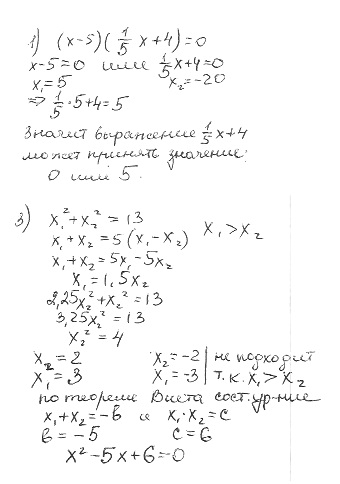 1) (x-5)(1/5 x+4)=0
x-5=0 или 1/5x+4=0
x₁=5 x₂=-20
=> 1/5·5+4=5
Значит выражение 1/5x+4
может принять значение:
0 или 5.
3) x₁²+x₂²=13
x₁+x₂=5(x₁-x₂) x₁>x₂
x₁+x₂=5x₁-5x₂
x₁=1,5x₂
2,25x₂²+x₂²=13
3,25x₂²=13
x₂²=4
x₂=2 x₂=-2 | не подходит
x₁=3 x₁=-3 | т.к. x₁>x₂
по теореме Виета сост. ур-ние
x₁+x₂=-b и x₁·x₂=c
b=-5 c=6
x²-5x+6=0